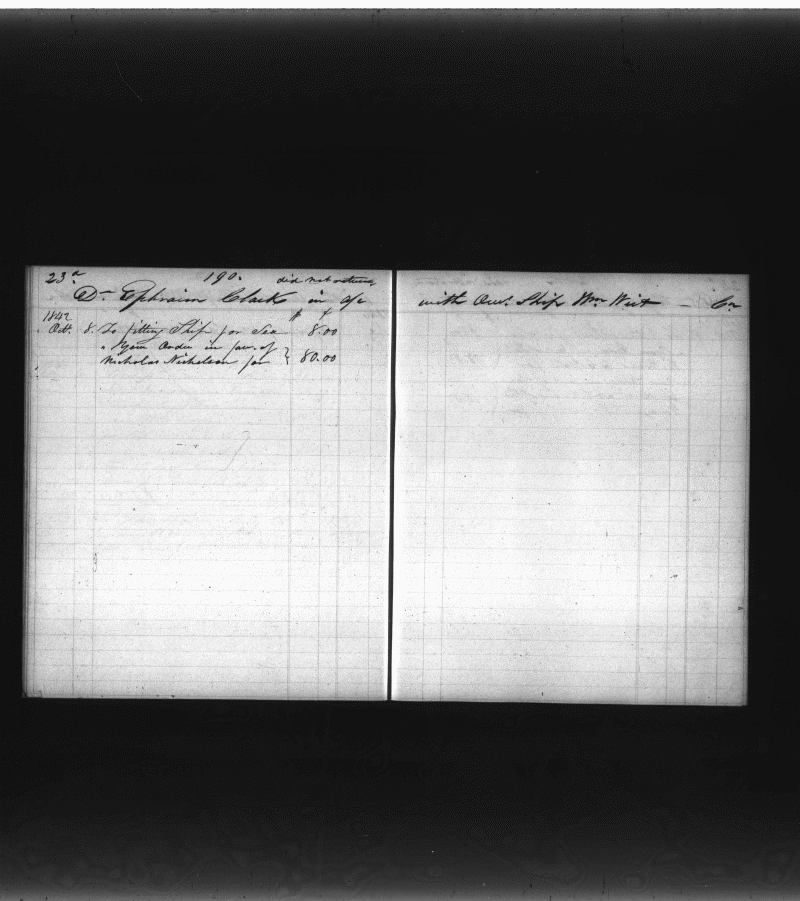 23d 190. did not return
Dr Ephraim Clark in a/c with Own.s Ship Wm Wirt Cr
1842 $ ¢
Oct. 8. To fitting Ship for Sea 8.00
" Your Order in fav. of
Nicholas Nickelson for } 80.00